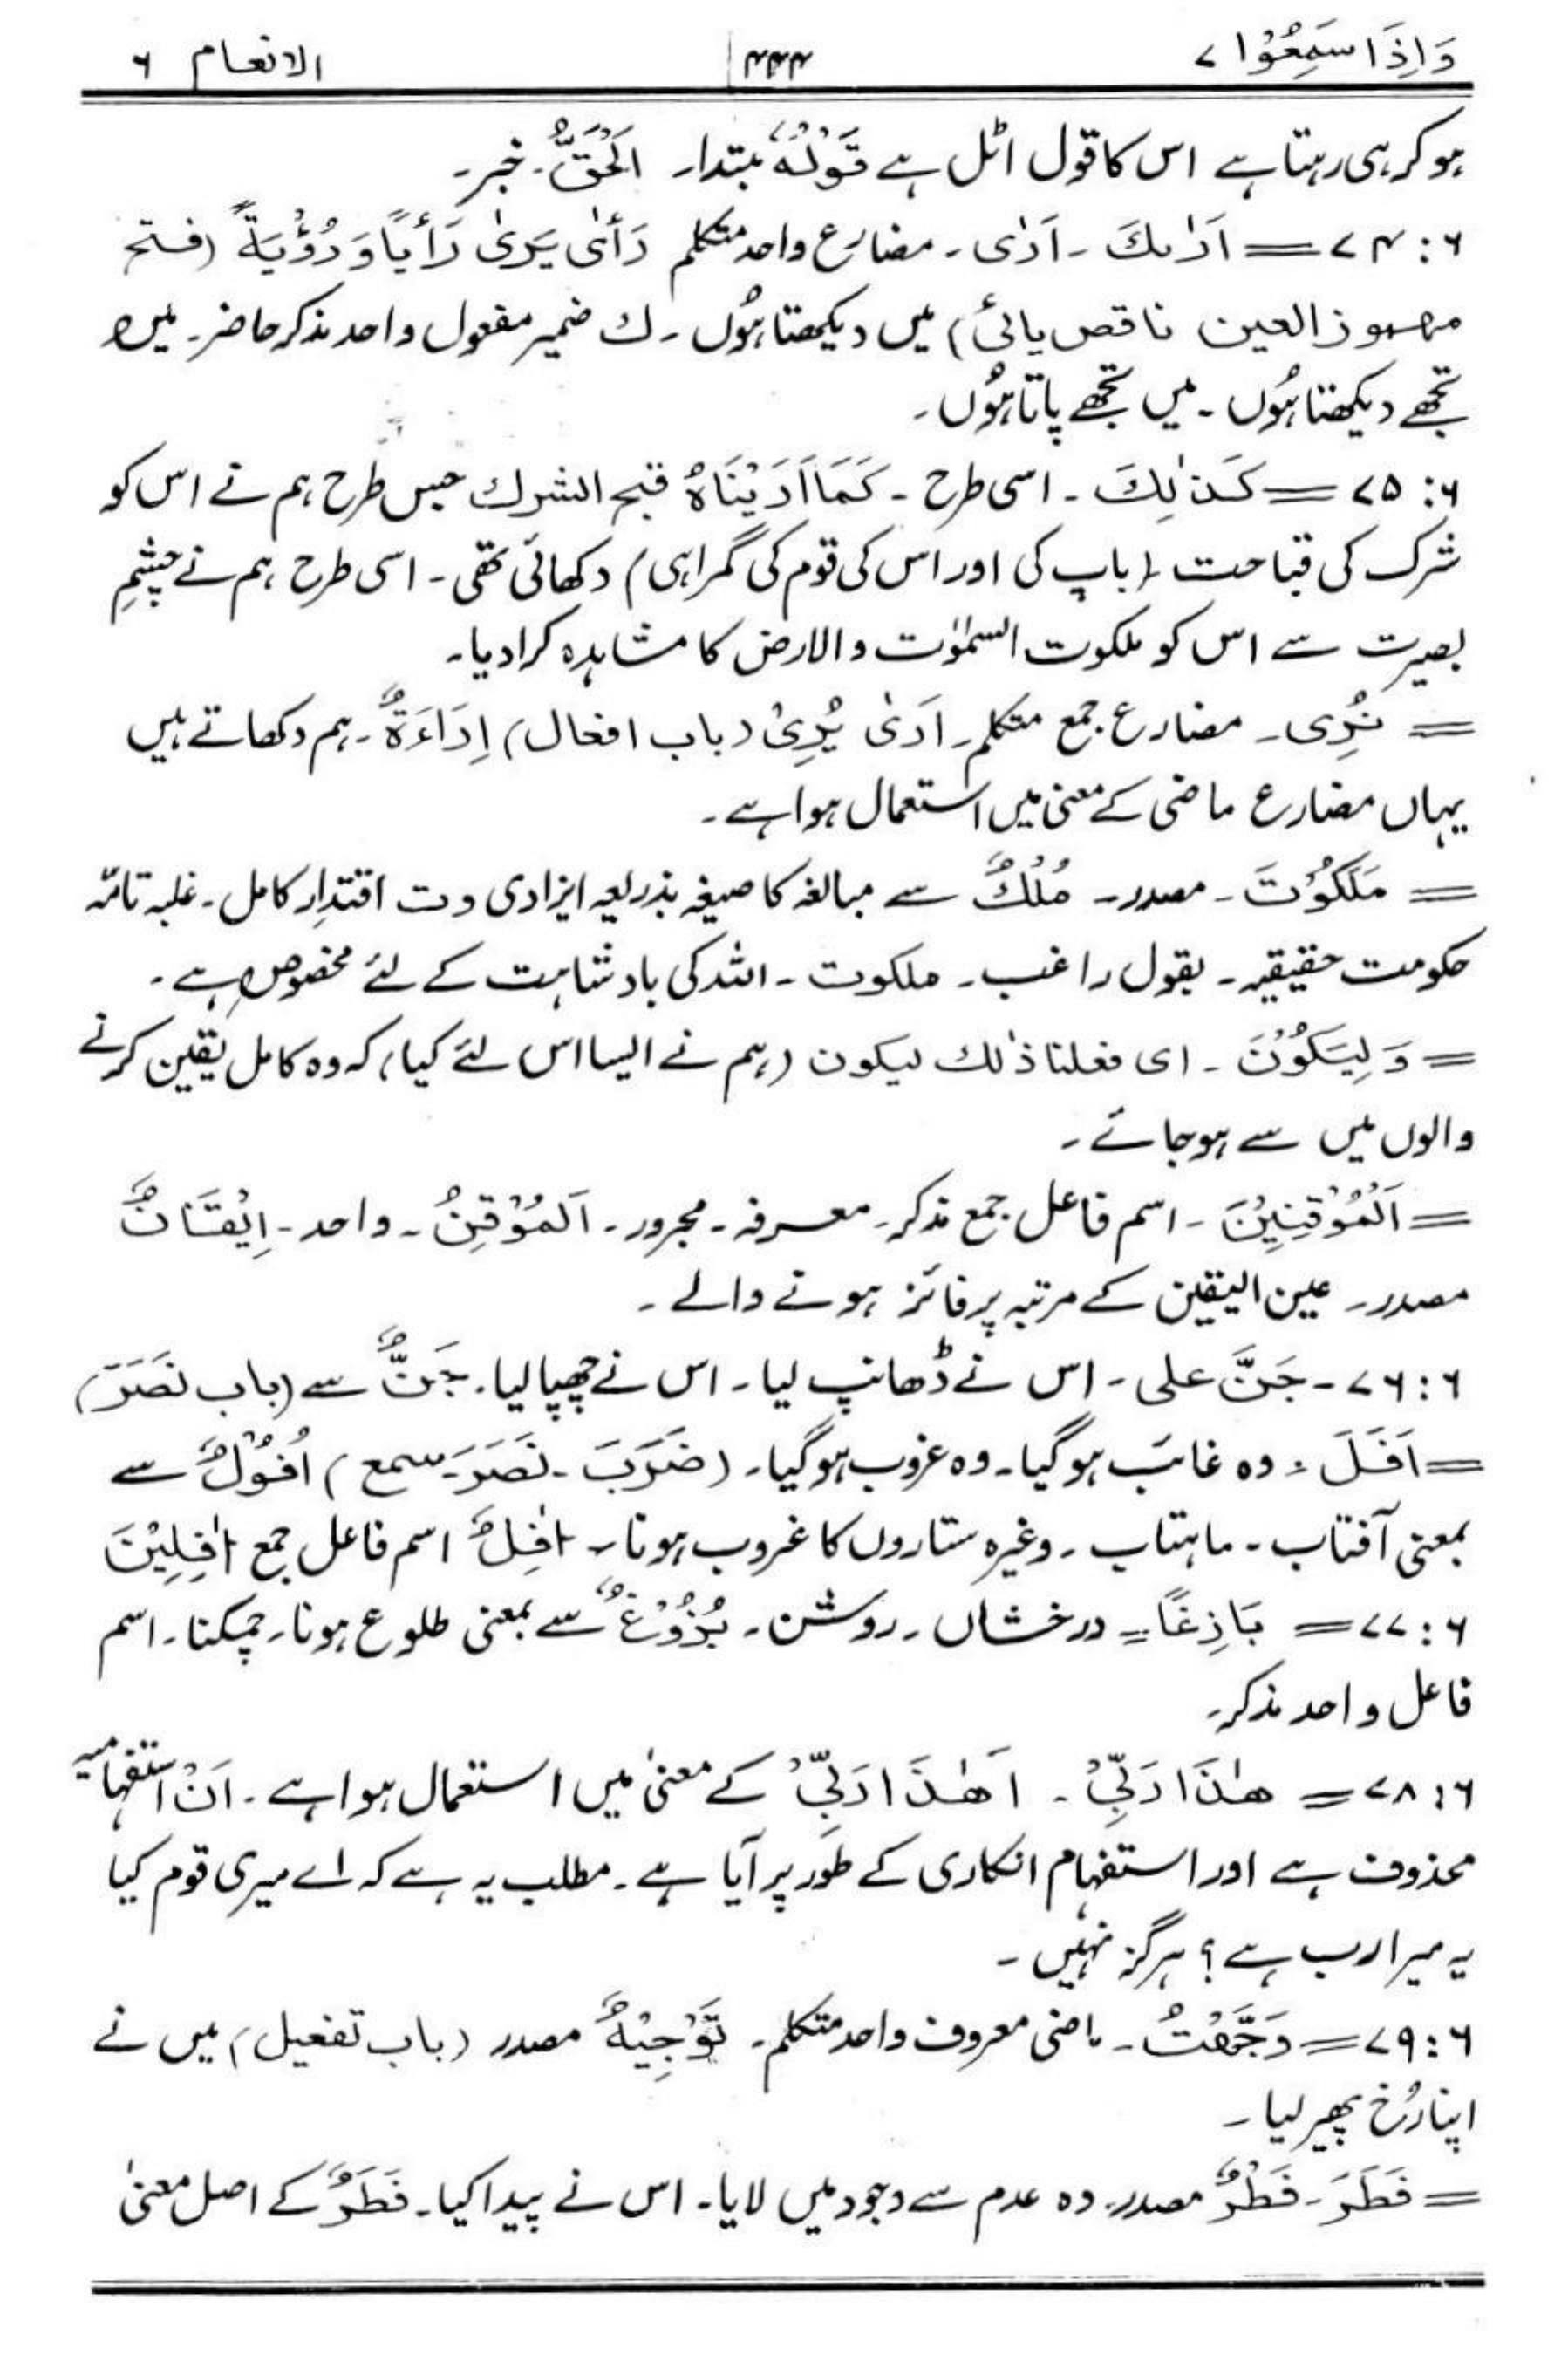 وَاِذَا سَمِعُوْا ۷ ۴۴۴ الانعام ۶
ہو کر ہی رہتا ہے اس کا قول اٹل ہے قَوْلُہٗ مبتدار۔ اَلْحَقُّ۔ خبر۔
۶ : ۷۴ = اَرٰىكَ ۔ اَرٰى ۔ مضارع واحد متکلم رَأٰى يَرٰى رَأْيًا وَ رُؤْيَةً (فتح
مہموز العین ناقص یائی) میں دیکھتا ہُوں ۔ ك ضمیر مفعول واحد مذکر حاضر۔ میں
تجھے دیکھتا ہُوں ۔ میں تجھے پاتا ہُوں ۔
۶ : ۷۵ = كَذٰلِكَ ۔ اسی طرح ۔ كَمَا اَرَيْنَاهُ قبح الشرك جس طرح ہم نے اس کو
شرک کی قباحت (باپ کی اور اس کی قوم کی گمراہی) دکھائی تھی ۔ اسی طرح ہم نے چشمِ
بصیرت سے اس کو ملکوت السمٰوٰت والارض کا مشاہدہ کرا دیا۔
= نُرِى ۔ مضارع جمع متکلم۔ اَرٰى يُرِىْ (باب افعال) اِرَاءَةٌ ۔ ہم دکھاتے ہیں
یہاں مضارع ماضی کے معنی میں استعمال ہوا ہے ۔
= مَلَكُوْتَ ۔ مصدر۔ مُلْكٌ سے مبالغہ کا صیغہ بذریعہ ایزادی وت اقتدارِ کامل ۔ غلبہ تامّہ
حکومت حقیقیہ ۔ بقول راغب ۔ ملکوت ۔ اللہ کی بادشاہت کے لئے مخصوص ہے ۔
= وَ لِيَكُوْنَ ۔ ای فعلنا ذٰلك ليكون (ہم نے ایسا اس لئے کیا) کہ وہ کامل یقین کرنے
والوں میں سے ہو جائے ۔
= اَلْمُوْقِنِيْنَ ۔ اسم فاعل جمع مذکر۔ معرفہ ۔ مجرور ۔ اَلْمُوْقِنُ ۔ واحد ۔ اِيْقَانٌ
مصدر۔ عین الیقین کے مرتبہ پر فائز ہونے والے ۔
۶ : ۷۶ ۔ جَنَّ علی ۔ اس نے ڈھانپ لیا ۔ اس نے چھپا لیا ۔ جَنٌّ سے (باب نَصَرَ)
= اَفَلَ = وہ غائب ہو گیا ۔ وہ غروب ہو گیا ۔ (ضَرَبَ ۔ نَصَرَ ۔ سمع) اُفُوْلٌ سے
بمعنی آفتاب ۔ ماہتاب ۔ وغیرہ ستاروں کا غروب ہونا ۔ اٰفِلٌ اسم فاعل جمع اٰفِلِيْنَ
۶ : ۷۷ = بَازِغًا = درخشاں ۔ روشن ۔ بُزُوْغٌ سے بمعنی طلوع ہونا ۔ چمکنا ۔ اسم
فاعل واحد مذکر۔
۶ : ۷۸ = هٰذَا رَبِّىْ ۔ اَهٰذَا رَبِّىْ کے معنیٰ میں استعمال ہوا ہے ۔ اَنْ استفہامیہ
محذوف ہے اور استفہام انکاری کے طور پر آیا ہے ۔ مطلب یہ ہے کہ اے میری قوم کیا
یہ میرا رب ہے ؟ ہرگز نہیں ۔
۶ : ۷۹ = وَجَّهْتُ ۔ ماضی معروف واحد متکلم ۔ تَوْجِيْهٌ مصدر (باب تفعیل) میں نے
اپنا رُخ پھیر لیا ۔
= فَطَرَ ۔ فَطْرٌ مصدر۔ وہ عدم سے وجود میں لایا ۔ اس نے پیدا کیا ۔ فَطْرٌ کے اصل معنیٰ